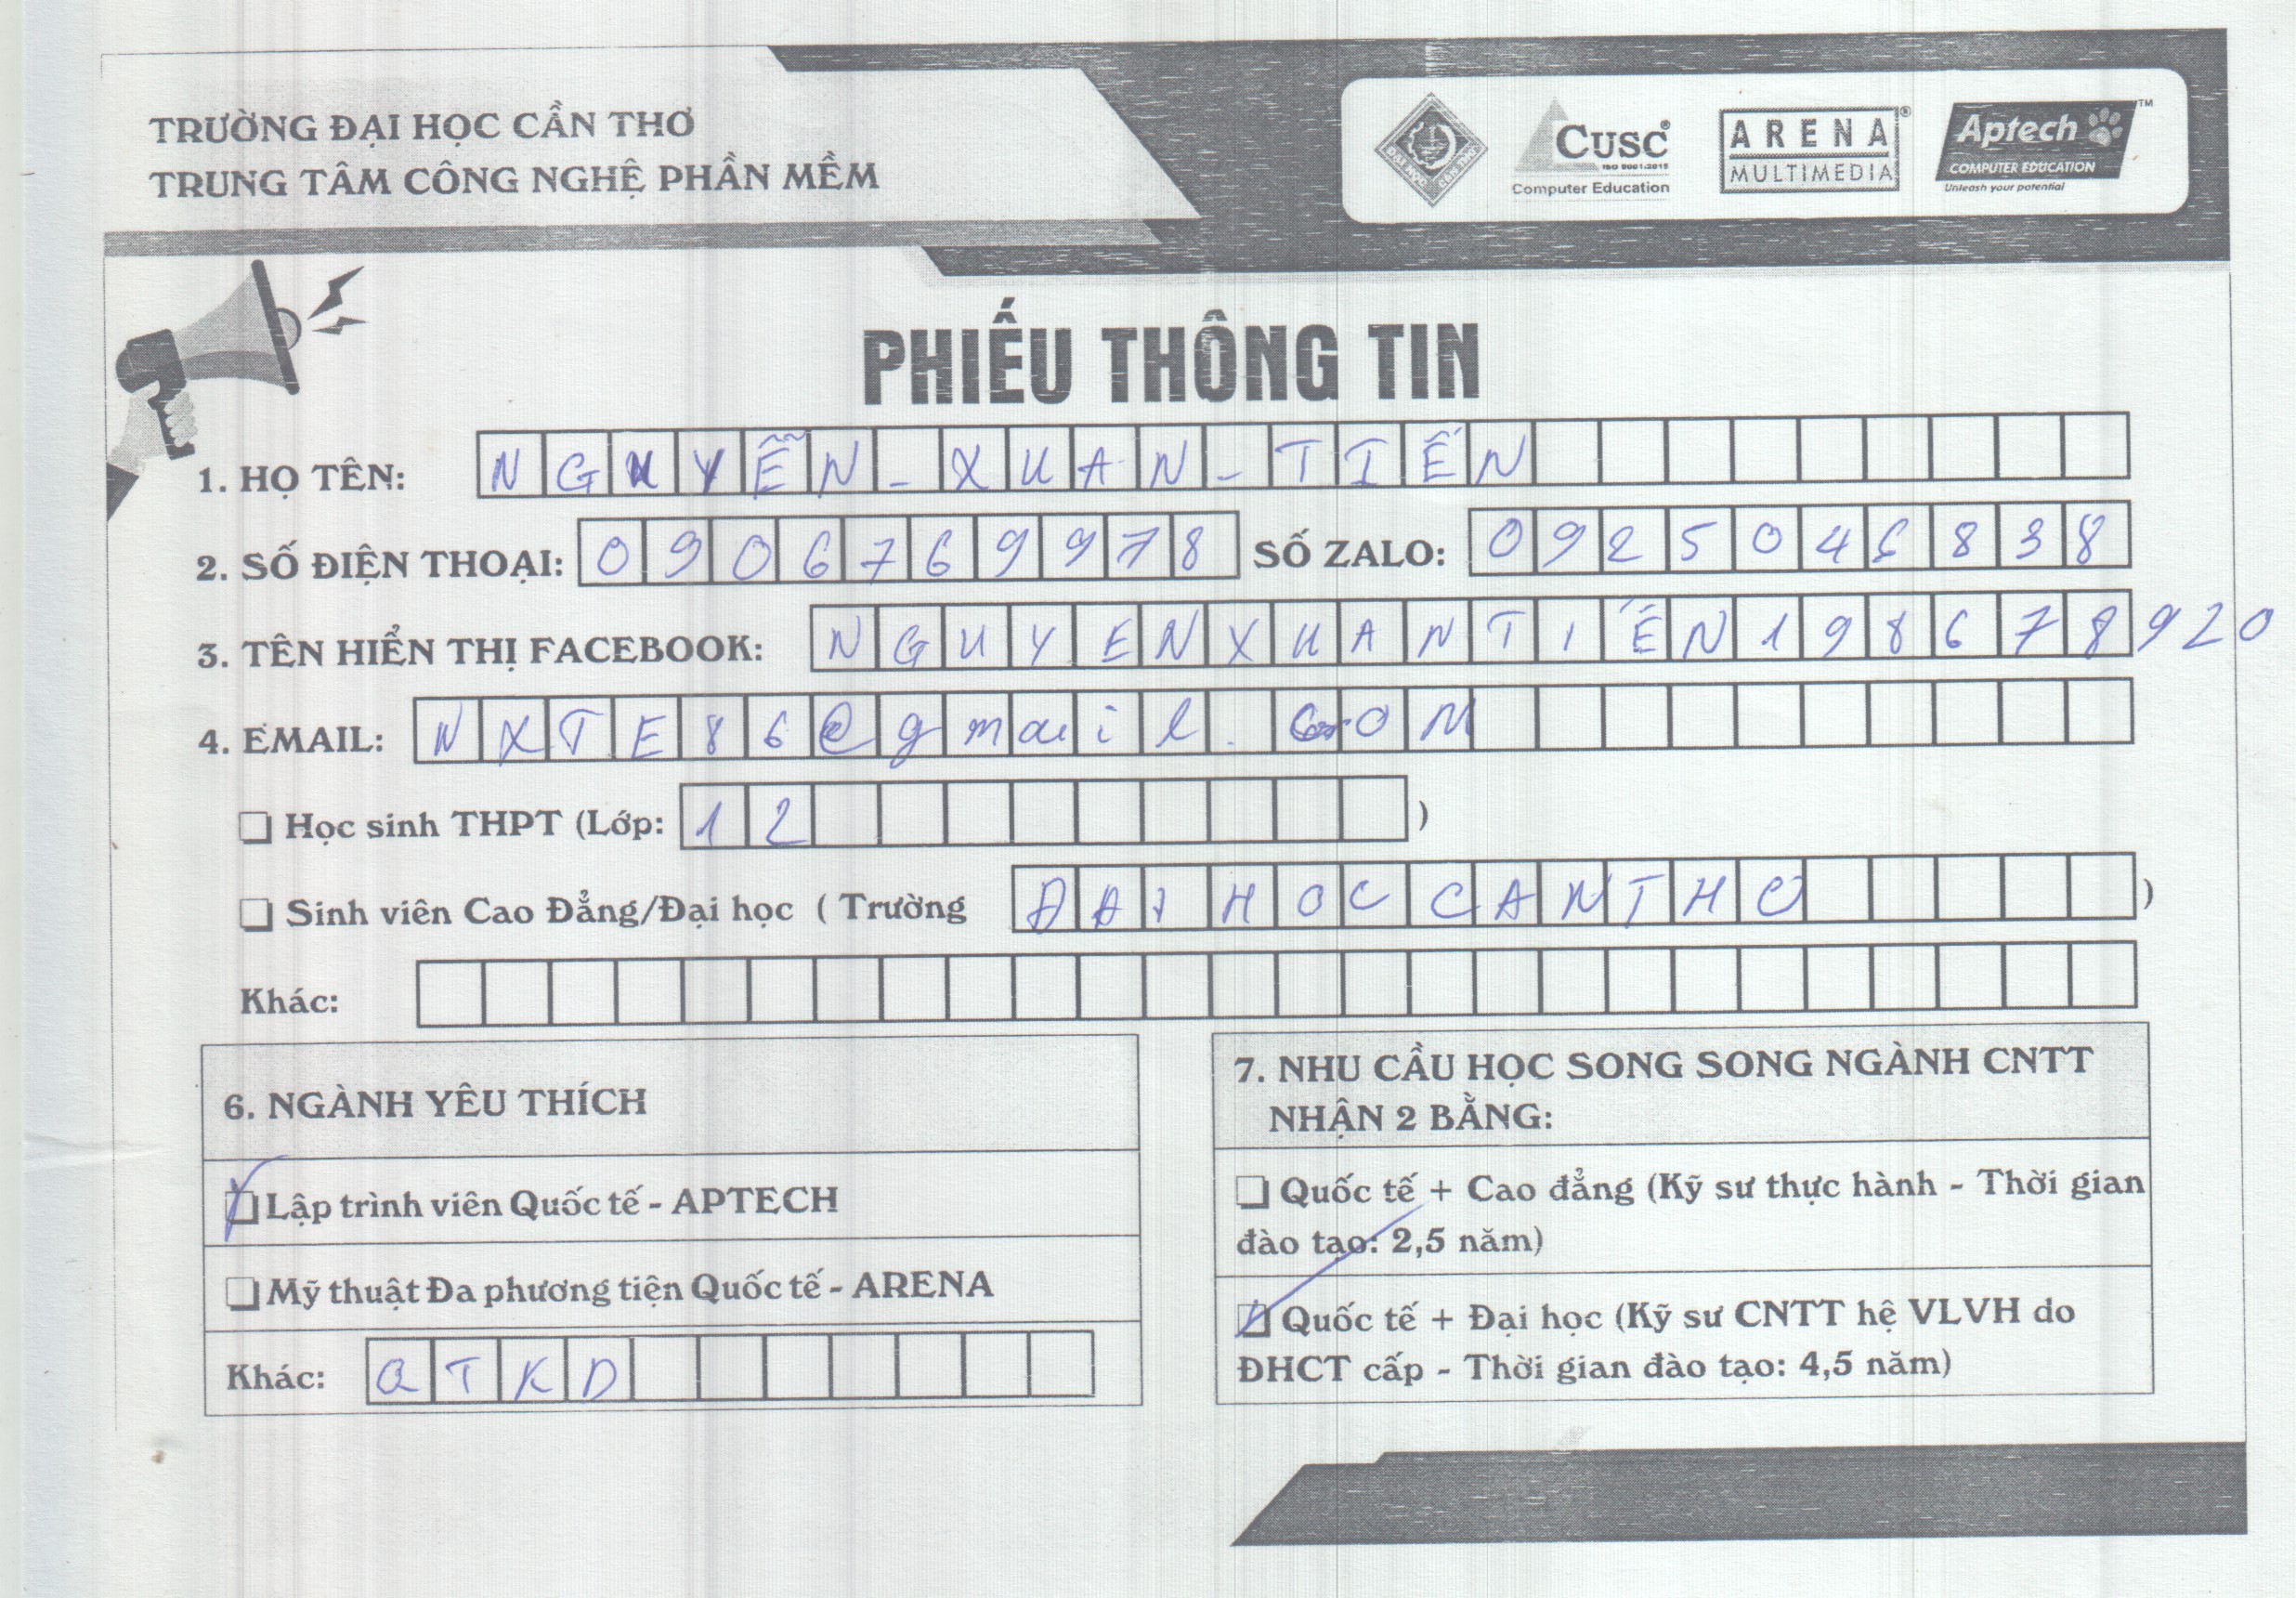 TRƯỜNG ĐẠI HỌC CẦN THƠ
TRUNG TÂM CÔNG NGHỆ PHẦN MỀM
ĐẠI HỌC CẦN THƠ
CUSC®
ISO 9001:2015
Computer Education
ARENA®
MULTIMEDIA
Aptech™
COMPUTER EDUCATION
Unleash your potential
PHIẾU THÔNG TIN
1. HỌ TÊN: NGUYỄN-XUAN-TIẾN
2. SỐ ĐIỆN THOẠI: 0906769978 SỐ ZALO: 0925046838
3. TÊN HIỂN THỊ FACEBOOK: NGUYENXUANTIẾN198678920
4. EMAIL: NXTE86@gmail.COM
❏ Học sinh THPT (Lớp: 12)
❏ Sinh viên Cao Đẳng/Đại học ( Trường ĐAI HOC CANTHO)
Khác:
6. NGÀNH YÊU THÍCH
☑ Lập trình viên Quốc tế - APTECH
❏ Mỹ thuật Đa phương tiện Quốc tế - ARENA
Khác: QTKD
7. NHU CẦU HỌC SONG SONG NGÀNH CNTT
NHẬN 2 BẰNG:
❏ Quốc tế + Cao đẳng (Kỹ sư thực hành - Thời gian
đào tạo: 2,5 năm)
☑ Quốc tế + Đại học (Kỹ sư CNTT hệ VLVH do
ĐHCT cấp - Thời gian đào tạo: 4,5 năm)